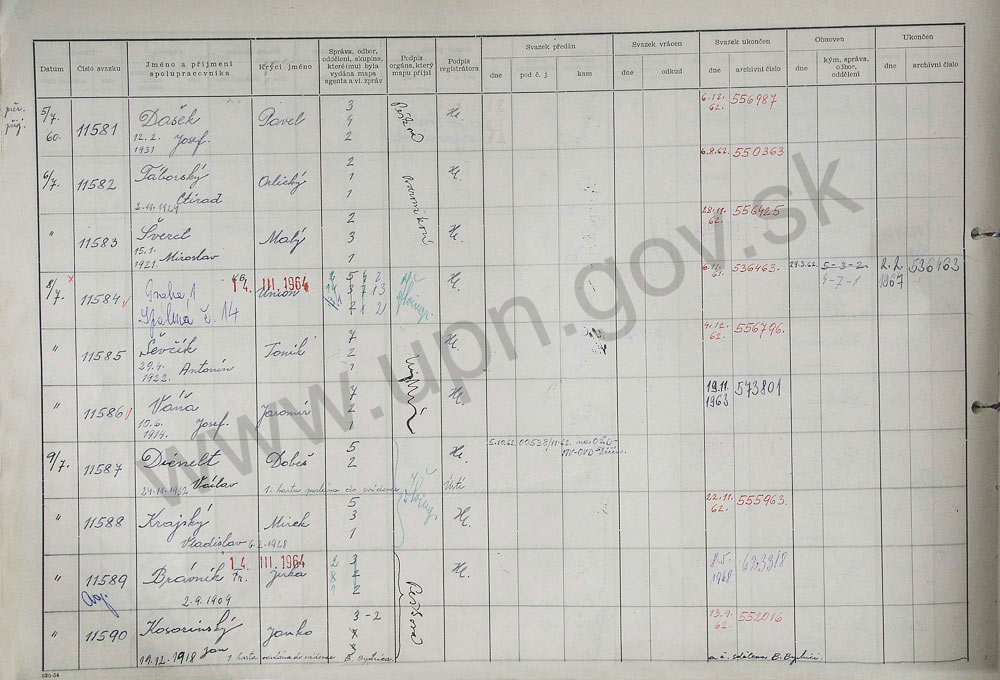 Datum
Číslo svazku
Jméno a příjmení
spolupracovníka
Krycí jméno
Správa, odbor,
oddělení, skupina,
které(mu) byla
vydána mapa
agenta a vl. zpráv
Podpis
orgána, který
mapu přijal
Podpis
registrátora
Svazek předán
dne
pod č. j.
kam
Svazek vrácen
dne
odkud
Svazek ukončen
dne
archivní číslo
Obnoven
dne
kým, správa,
odbor,
oddělení
Ukončen
dne
archivní číslo
5/7.
60.
11581
Dašek
12. 2.
1931 Josef.
Pavel
3
4
2
6.12.
62.
556987
6/7.
11582
Táborský
Ctirad
Orlický
2
1
1
6.8.62.
550363
"
11583
Švercl
15.1.
1921. Miroslav
Malý
2
3
1
28.11.
62.
556425
8/7.
11584
Praha 1
Spálená č. 14
14. III. 1964
Union
536463.
29.3.62.
5-3-2.
4-2-1
2.2.
1967
536463
"
11585
Ševčík
29.4.
1922. Antonín
Toník
7
2
1
4.12.
62.
556796.
"
11586
Váňa
10.6.
1914. Josef.
Jaromír
7
2
1
19.11.
1963
573801
9/7.
11587
Dienelt
24.11.1932 Václav
Dobeš
5
2
1. karta poslána do evidence
Ústí
5.10.62.
00528/11-62.
"
11588
Krajský
Vladislav 6.2.1928
Mirek
5
3
1
22.11.
62.
555963.
"
11589
Ag.
Brávník Fr.
2.9.1909
14. III. 1964
Jirka
3
2
2
1968
623318
"
11590
Kosorinský
19.12.1918 Jan
Janko
3-2
1 karta odeslána do evidence B. Bystrica
13.9.
62.
552016
B. Bystrici.
630-54
www.upn.gov.sk